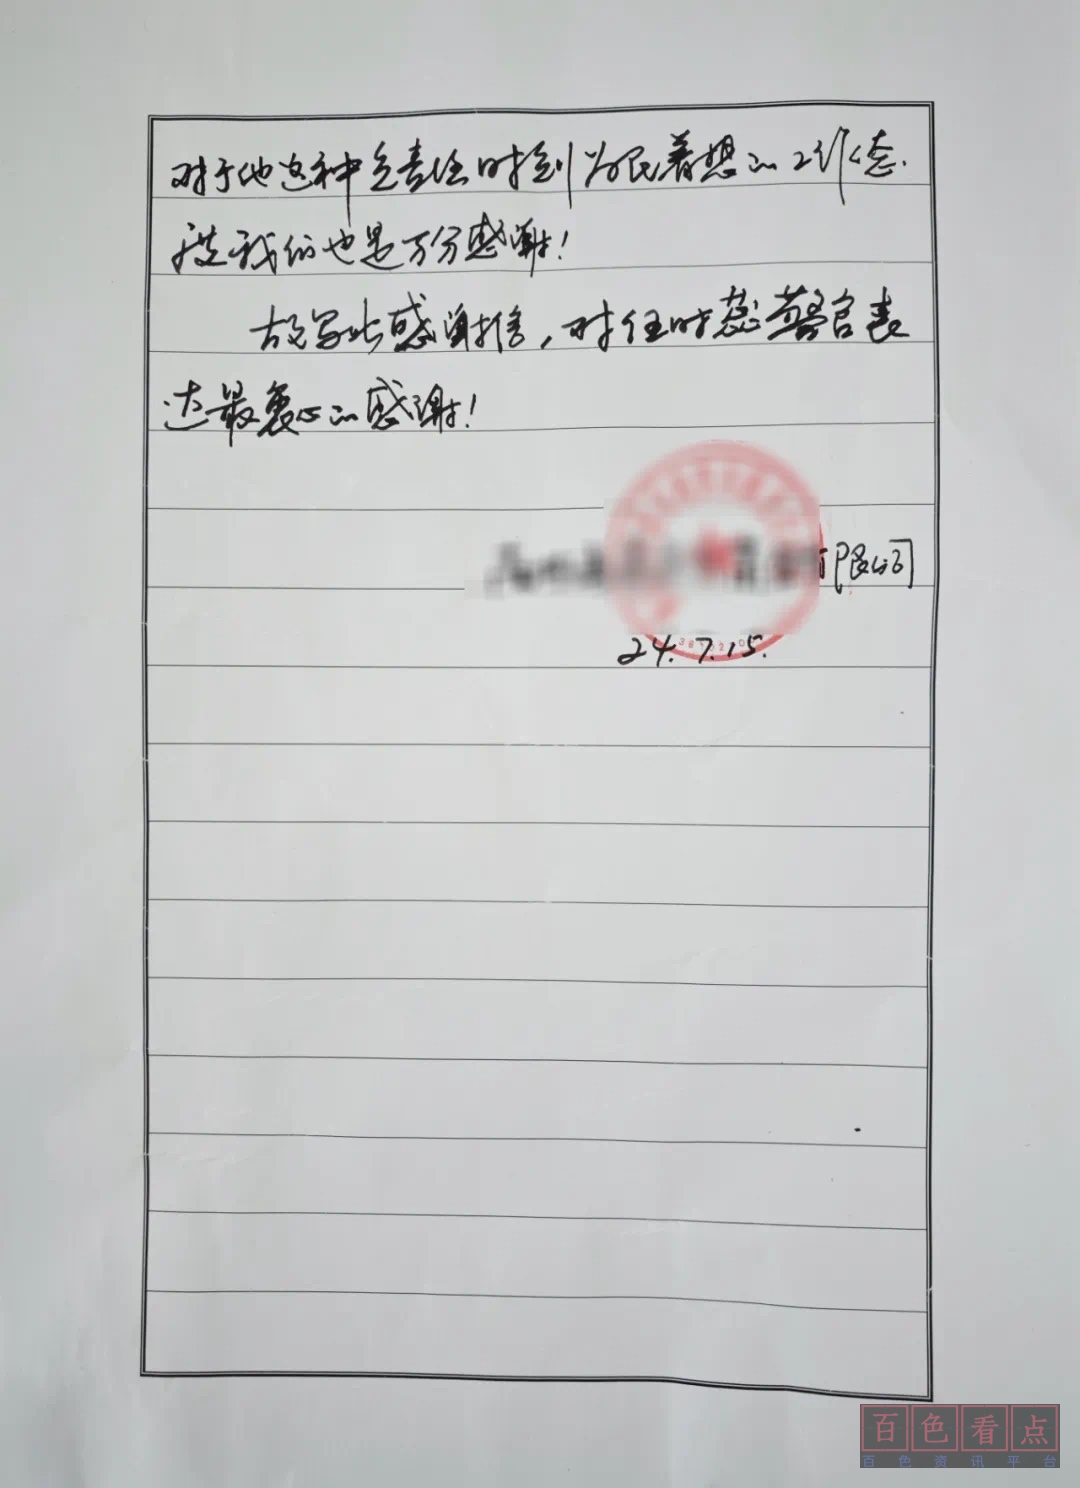 对于他这种负责任时刻为民着想的工作态
度我们也是万分感谢!
故写此感谢信,对任时蕊警官表
达最衷心的感谢!
有限公司
24.7.15.
百色看点
百色资讯平台